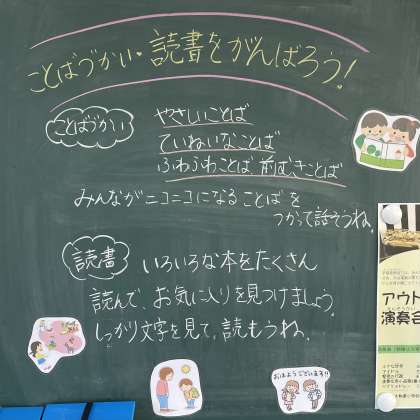 ことばづかい・読書をがんばろう!
ことばづかい
やさしいことば
ていねいなことば
ふわふわことば 前むきことば
みんながニコニコになる ことば を
つかって話そうね。
読書
いろいろな本をたくさん
読んで、お気に入りを見つけましょう。
しっかり文字を見て、読もうね。
おはようございます!!
アウト
演奏会